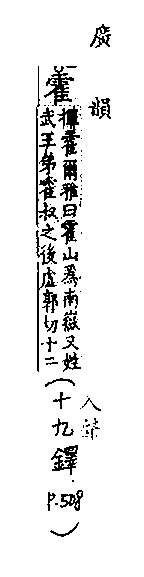 廣韻
霍
揮霍爾雅曰霍山爲南嶽又姓
武王弟霍叔之後虛郭切十二
入聲
(十九鐸 P.508)